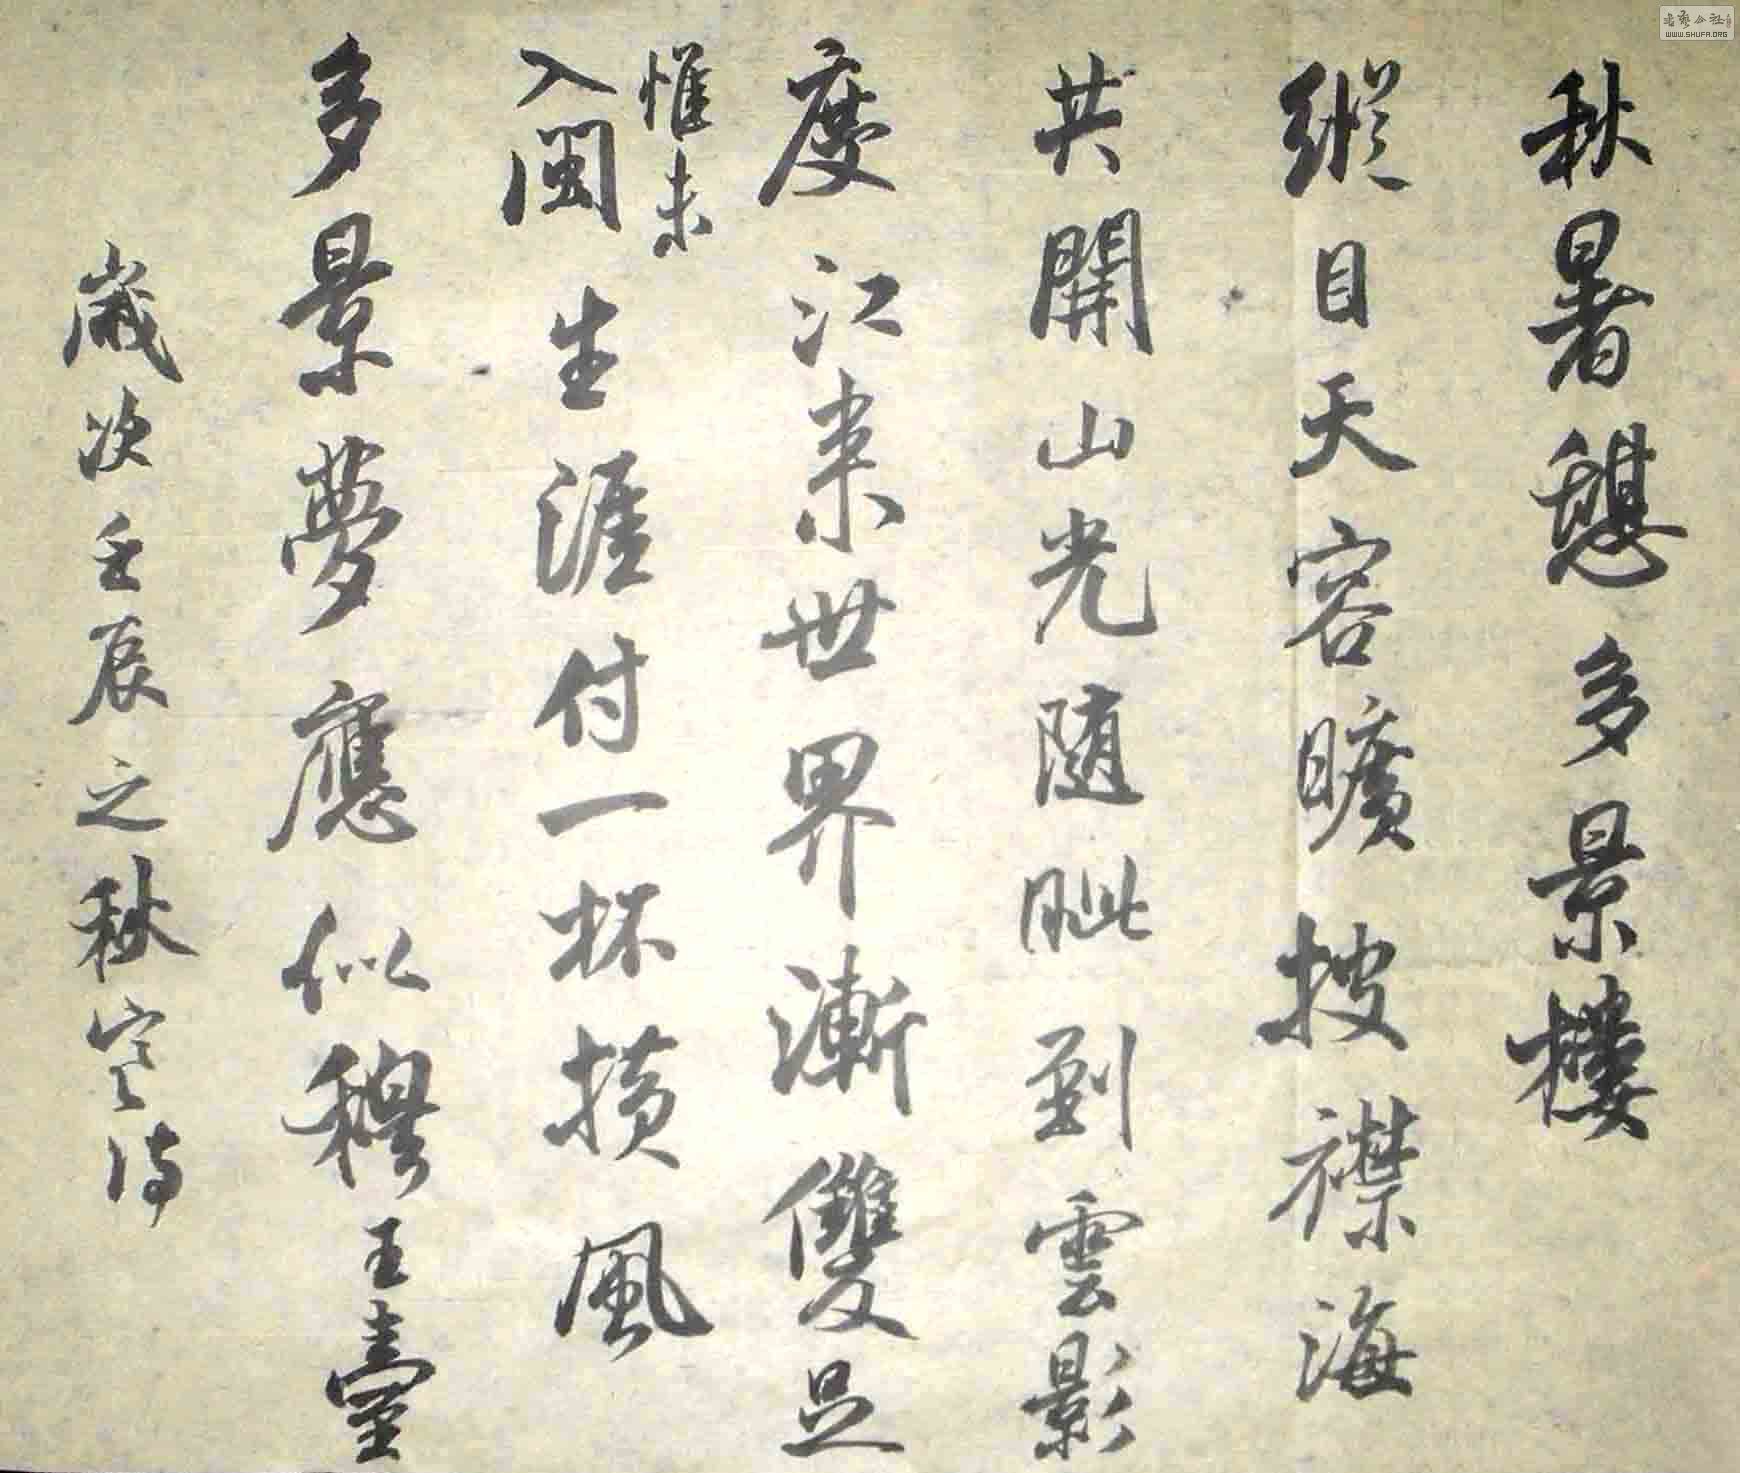 秋暑憩多景樓
縱目天容曠披襟海
共開山光随眦到雲影
度江来世界漸雙足
惟未
入閩生涯付一杯橫風
多景夢應似穆王臺
歲次壬辰之秋
书艺公社
WWW.SHUFA.ORG